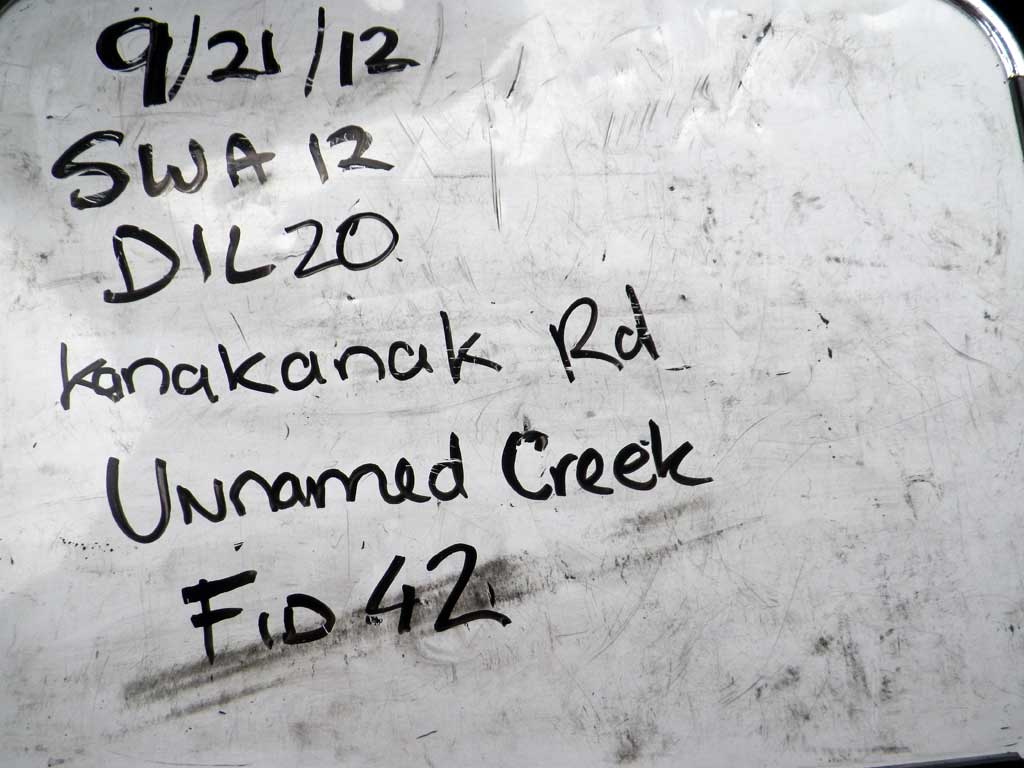 9/21/12
SWA 12
DIL20
Kanakanak Rd
Unnamed Creek
FID 42